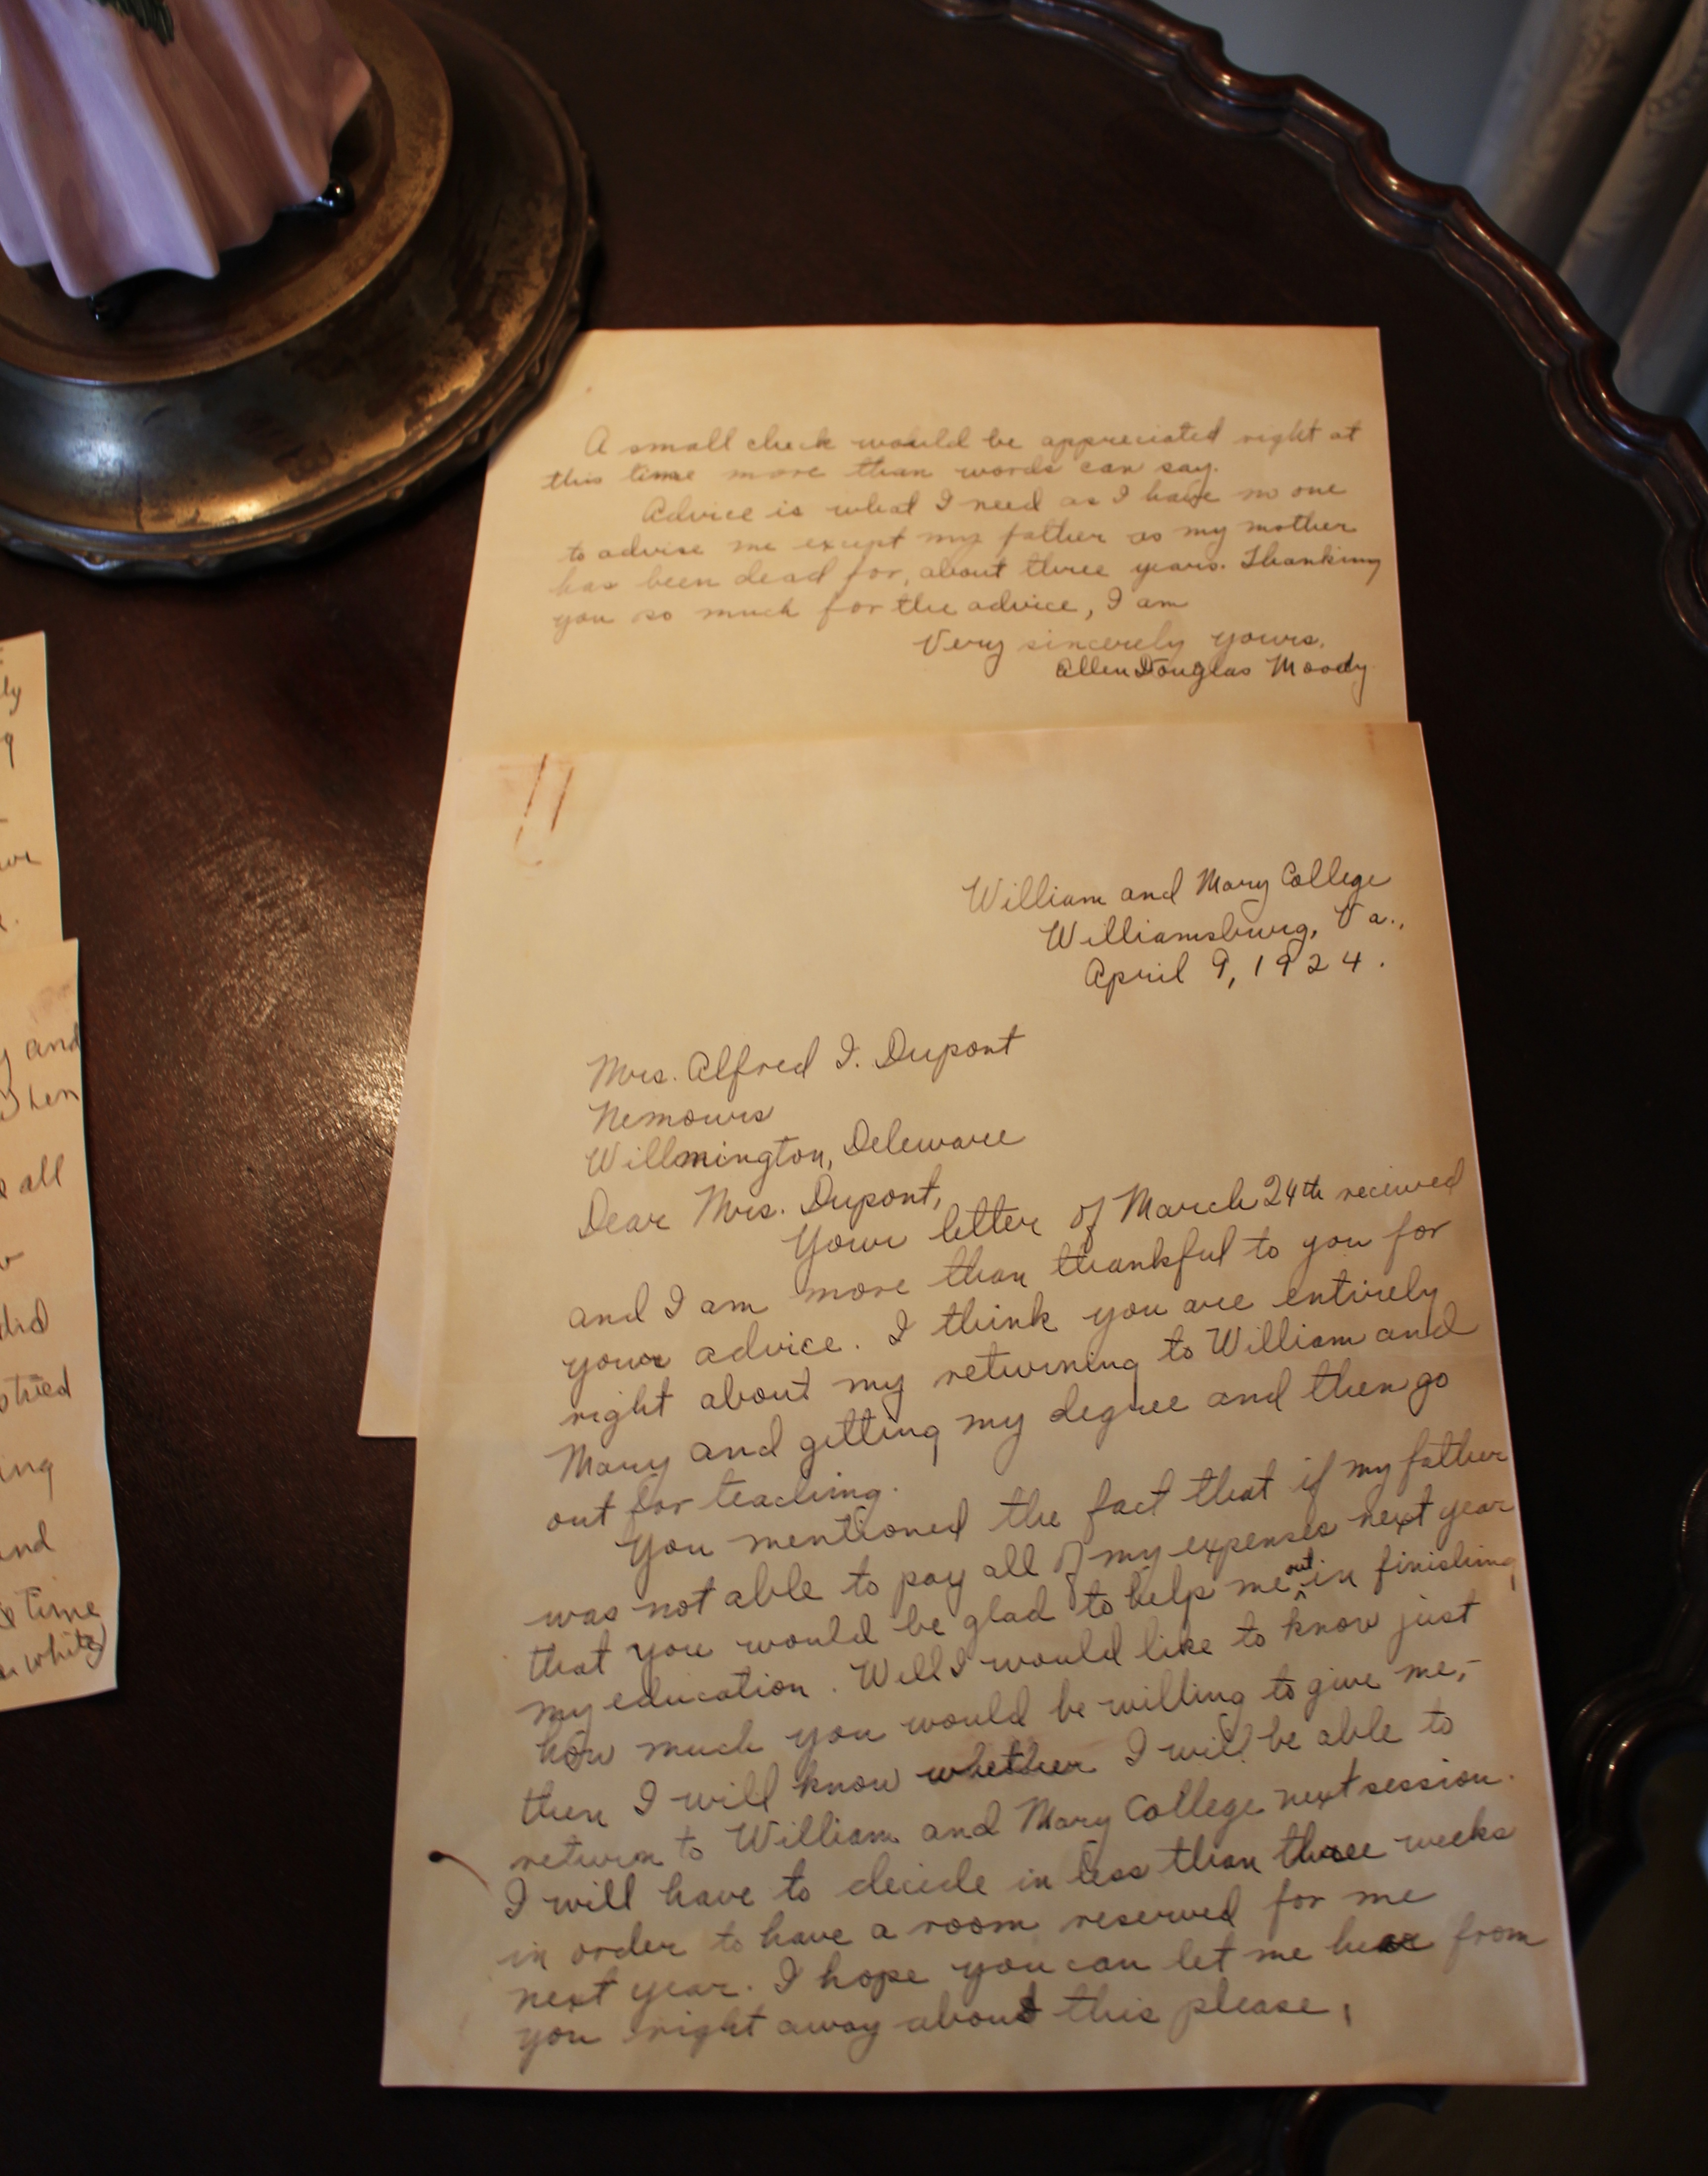 A small check would be appreciated right at
this time more than words can say.
Advice is what I need as I have no one
to advise me except my father as my mother
has been dead for, about three years. Thanking
you so much for the advice, I am
Very sincerely yours,
Allen Douglas Moody
William and Mary College
Williamsburg, Va.,
April 9, 1924.
Mrs. Alfred I. Dupont
Nemours
Willmington, Deleware
Dear Mrs. Dupont,
Your letter of March 24th recieved
and I am more than thankful to you for
your advice. I think you are entirely
right about my returning to William and
Mary and getting my degree and then go
out for teaching.
You mentioned the fact that if my father
was not able to pay all of my expenses next year
that you would be glad to help me out in finishing
my education. Well I would like to know just
how much you would be willing to give me,-
then I will know whether I will be able to
return to William and Mary College next session.
I will have to decide in less than three weeks
in order to have a room reserved for me
next year. I hope you can let me hear from
you right away about this please,
ly
9
y and
all
did
ing
and
time
white